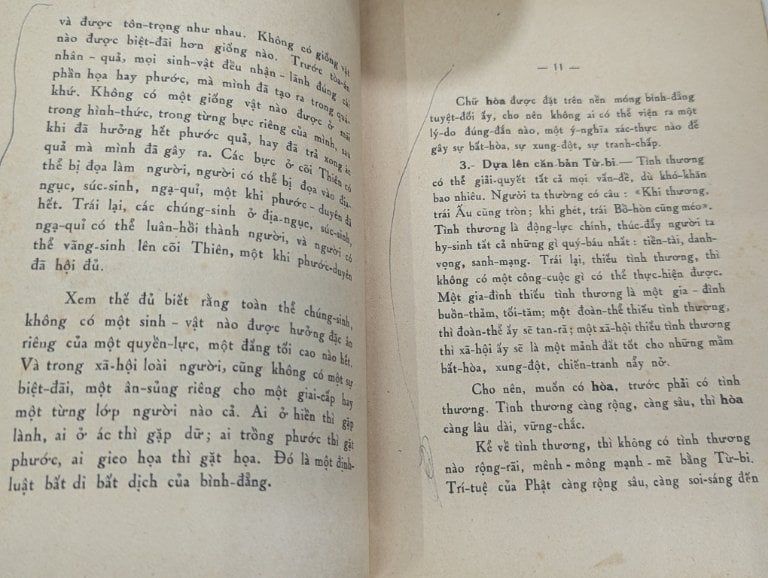 và được tôn-trọng như nhau. Không có giống vật
nào được biệt-đãi hơn giống nào. Trước tòa-án
nhân - quả, mọi sinh-vật đều nhận - lãnh đúng cái
phần họa hay phước, mà mình đã tạo ra trong quá-
khứ. Không có một giống vật nào được ở mãi
trong hình-thức, trong từng bực riêng của mình, sau
khi đã hưởng hết phước quả, hay đã trả xong ác
quả mà mình đã gây ra. Các bực ở cõi Thiên có
thể bị đọa làm người, người có thể bị đọa vào địa-
ngục, súc-sinh, ngạ-quỉ, một khi phước - duyên đã
hết. Trái lại, các chúng-sinh ở địa-ngục, súc-sinh,
ngạ-quỉ có thể luân-hồi thành người, và người có
thể vãng-sinh lên cõi Thiên, một khi phước-duyên
đã hội đủ.
Xem thế đủ biết rằng toàn thể chúng-sinh,
không có một sinh - vật nào được hưởng đặc ân
riêng của một quyền-lực, một đấng tối cao nào hết.
Và trong xã-hội loài người, cũng không có một sự
biệt-đãi, một ân-sủng riêng cho một giai-cấp hay
một từng lớp người nào cả. Ai ở hiền thì gặp
lành, ai ở ác thì gặp dữ; ai trồng phước thì gặt
phước, ai gieo họa thì gặt họa. Đó là một định-
luật bất di bất dịch của bình-đẳng.
— 11 —
Chữ hòa được đặt trên nền móng bình-đẳng
tuyệt-đối ấy, cho nên không ai có thể viện ra một
lý-do đúng-đắn nào, một ý-nghĩa xác-thực nào để
gây sự bất-hòa, sự xung-đột, sự tranh-chấp.
3.- Dựa lên căn-bản Từ-bi.— Tình thương
có thể giải-quyết tất cả mọi vấn-đề, dù khó-khăn
bao nhiêu. Người ta thường có câu : «Khi thương,
trái Ấu cũng tròn ; khi ghét, trái Bồ-hòn cũng méo».
Tình thương là động-lực chính, thúc-đẩy người ta
hy-sinh tất cả những gì quý-báu nhất : tiền-tài, danh-
vọng, sanh-mạng. Trái lại, thiếu tình thương, thì
không có một công-cuộc gì có thể thực-hiện được.
Một gia-đình thiếu tình thương là một gia - đình
buồn-thảm, tối-tăm; một đoàn-thể thiếu tình thương,
thì đoàn-thể ấy sẽ tan-rã ; một xã-hội thiếu tình thương
thì xã-hội ấy sẽ là một mảnh đất tốt cho những mầm
bất-hòa, xung-đột, chiến-tranh nẩy nở.
Cho nên, muốn có hòa, trước phải có tình
thương. Tình thương càng rộng, càng sâu, thì hòa
càng lâu dài, vững-chắc.
Kể về tình-thương, thì không có tình thương
nào rộng-rãi, mênh - mông mạnh - mẽ bằng Từ-bi.
Trí-tuệ của Phật càng rộng sâu, càng soi-sáng đến